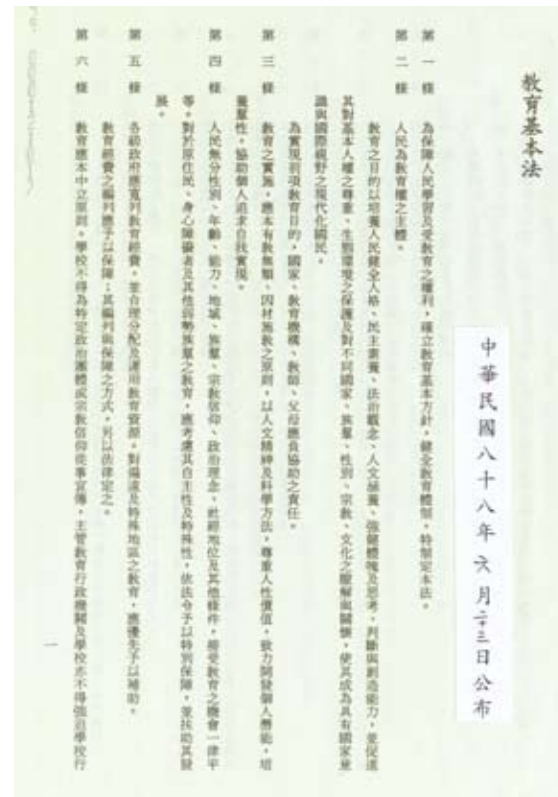 教育基本法
中華民國八十八年六月二十三日公布
第一條 為保障人民學習及受教育之權利，確立教育基本方針，健全教育體制，特制定本法。
第二條 人民為教育權之主體。
教育之目的以培養人民健全人格、民主素養、法治觀念、人文涵養、強健體魄及思考、判斷與創造能力，並促進
其對基本人權之尊重、生態環境之保護及對不同國家、族群、性別、宗教、文化之瞭解與關懷，使其成為具有國家意
識與國際視野之現代化國民。
為實現前項教育目的，國家、教育機構、教師、父母應負協助之責任。
第三條 教育之實施，應本有教無類、因材施教之原則，以人文精神及科學方法，尊重人性價值，致力開發個人潛能，培
養群性，協助個人追求自我實現。
第四條 人民無分性別、年齡、能力、地域、族群、宗教信仰、政治理念、社經地位及其他條件，接受教育之機會一律平
等。對於原住民、身心障礙者及其他弱勢族群之教育，應考慮其自主性及特殊性，依法令予以特別保障，並扶助其發
展。
第五條 各級政府應寬列教育經費，並合理分配及運用教育資源。對偏遠及特殊地區之教育，應優先予以補助。
教育經費之編列應予以保障；其編列與保障之方式，另以法律定之。
第六條 教育應本中立原則。學校不得為特定政治團體或宗教信仰從事宣傳，主管教育行政機關及學校亦不得強迫學校行
一